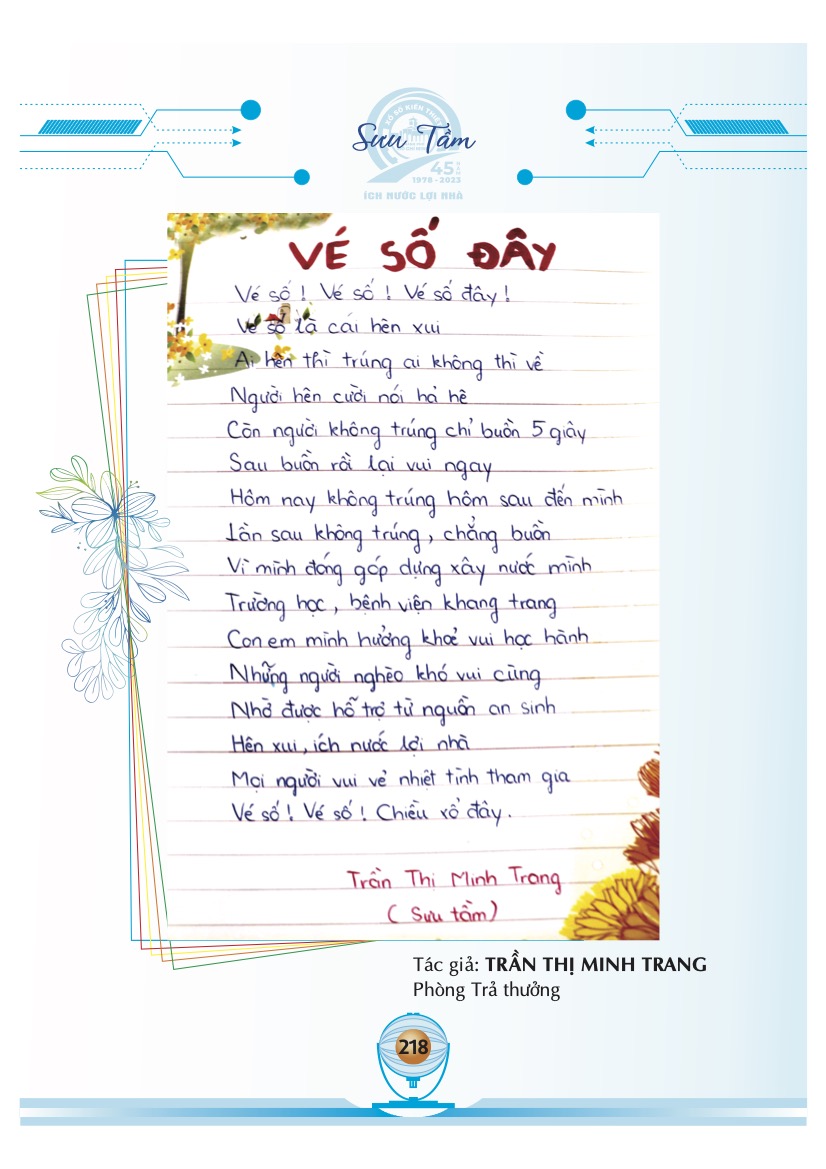 XỔ SỐ KIẾN THIẾT
Sưu Tầm
45 NĂM
1978 - 2023
ÍCH NƯỚC LỢI NHÀ
VÉ SỐ ĐÂY
Vé số ! Vé số ! Vé số đây !
Vé số là cái hên xui
Ai hên thì trúng ai không thì về
Người hên cười nói hả hê
Còn người không trúng chỉ buồn 5 giây
Sau buồn rồi lại vui ngay
Hôm nay không trúng hôm sau đến mình
Lần sau không trúng, chẳng buồn
Vì mình đóng góp dựng xây nước mình
Trường học, bệnh viện khang trang
Con em mình hưởng khoẻ vui học hành
Những người nghèo khó vui cùng
Nhờ được hỗ trợ từ nguồn an sinh
Hên xui, ích nước lợi nhà
Mọi người vui vẻ nhiệt tình tham gia
Vé số ! Vé số ! Chiều xổ đây.
Trần Thị Minh Trang
( Sưu tầm)
Tác giả: TRẦN THỊ MINH TRANG
Phòng Trả thưởng
218